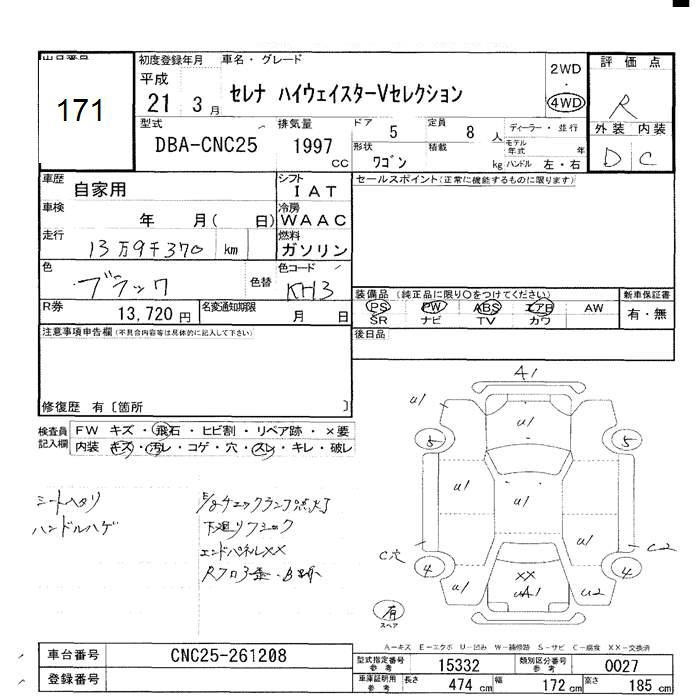 出品番号
171
初度登録年月 車名・グレード
平成 21 3月
セレナ ハイウェイスターVセレクション
2WD ・ 4WD
評価点
R
外装 内装
D C
型式 DBA-CNC25
排気量 1997 cc
ドア 5
定員 8 人
形状 ワゴン
積載 kg
ディーラー・並行
モデル年式 年
ハンドル 左・右
車歴 自家用
シフト IAT
セールスポイント(正常に機能するものに限ります)
車検 年 月( 日)
冷房 WAAC
走行 13万9千370 km
燃料 ガソリン
色 ブラック
色替
色コード KH3
装備品 (純正品に限り○をつけてください)
新車保証書
PS PW ABS エアB AW
SR ナビ TV カワ
有・無
R券 13,720円
名変通知期限 月 日
注意事項申告欄(不具合内容等は具体的に記入して下さい)
後日品
修復歴 有〔箇所 〕
検査員記入欄
FW キズ・飛石・ヒビ割・リペア跡・×要
内装 キズ・汚レ・コゲ・穴・スレ・キレ・破レ
シートヘタリ
ハンドルハゲ
E/gチェックランプ点灯
下廻リ
エンドパネルXX
Rフロア
A1
u1 u1
5 5
u1 u1 u1
C穴 C2
4 4
u1 XX uA1 u2
有
スペア
A-キズ E-エクボ U-凹み W-補修跡 S-サビ C-腐食 XX-交換済
車台番号 CNC25-261208
登録番号
型式指定番号 参考 15332
類別区分番号 参考 0027
車庫証明用 参考 長さ 474 cm 幅 172 cm 高さ 185 cm